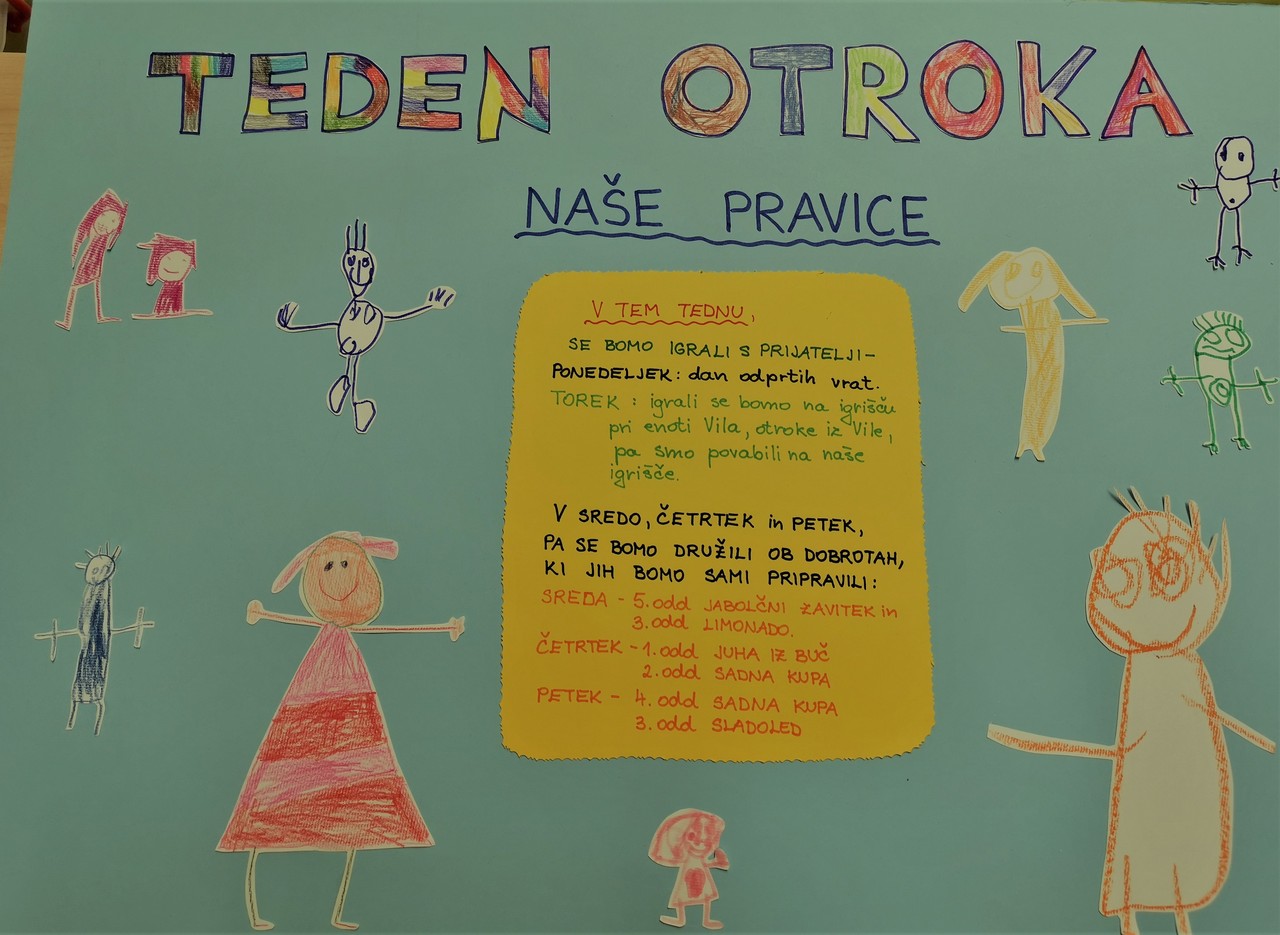 TEDEN OTROKA
NAŠE PRAVICE
V TEM TEDNU,
SE BOMO IGRALI S PRIJATELJI-
PONEDELJEK: dan odprtih vrat.
TOREK: igrali se bomo na igrišču
pri enoti Vila, otroke iz Vile,
pa smo povabili na naše
igrišče.
V SREDO, ČETRTEK in PETEK,
PA SE BOMO DRUŽILI OB DOBROTAH,
KI JIH BOMO SAMI PRIPRAVILI:
SREDA - 5.odd JABOLČNI ZAVITEK in
3.odd LIMONADO.
ČETRTEK - 1.odd JUHA IZ BUČ
2.odd SADNA KUPA
PETEK - 4.odd SADNA KUPA
3.odd SLADOLED